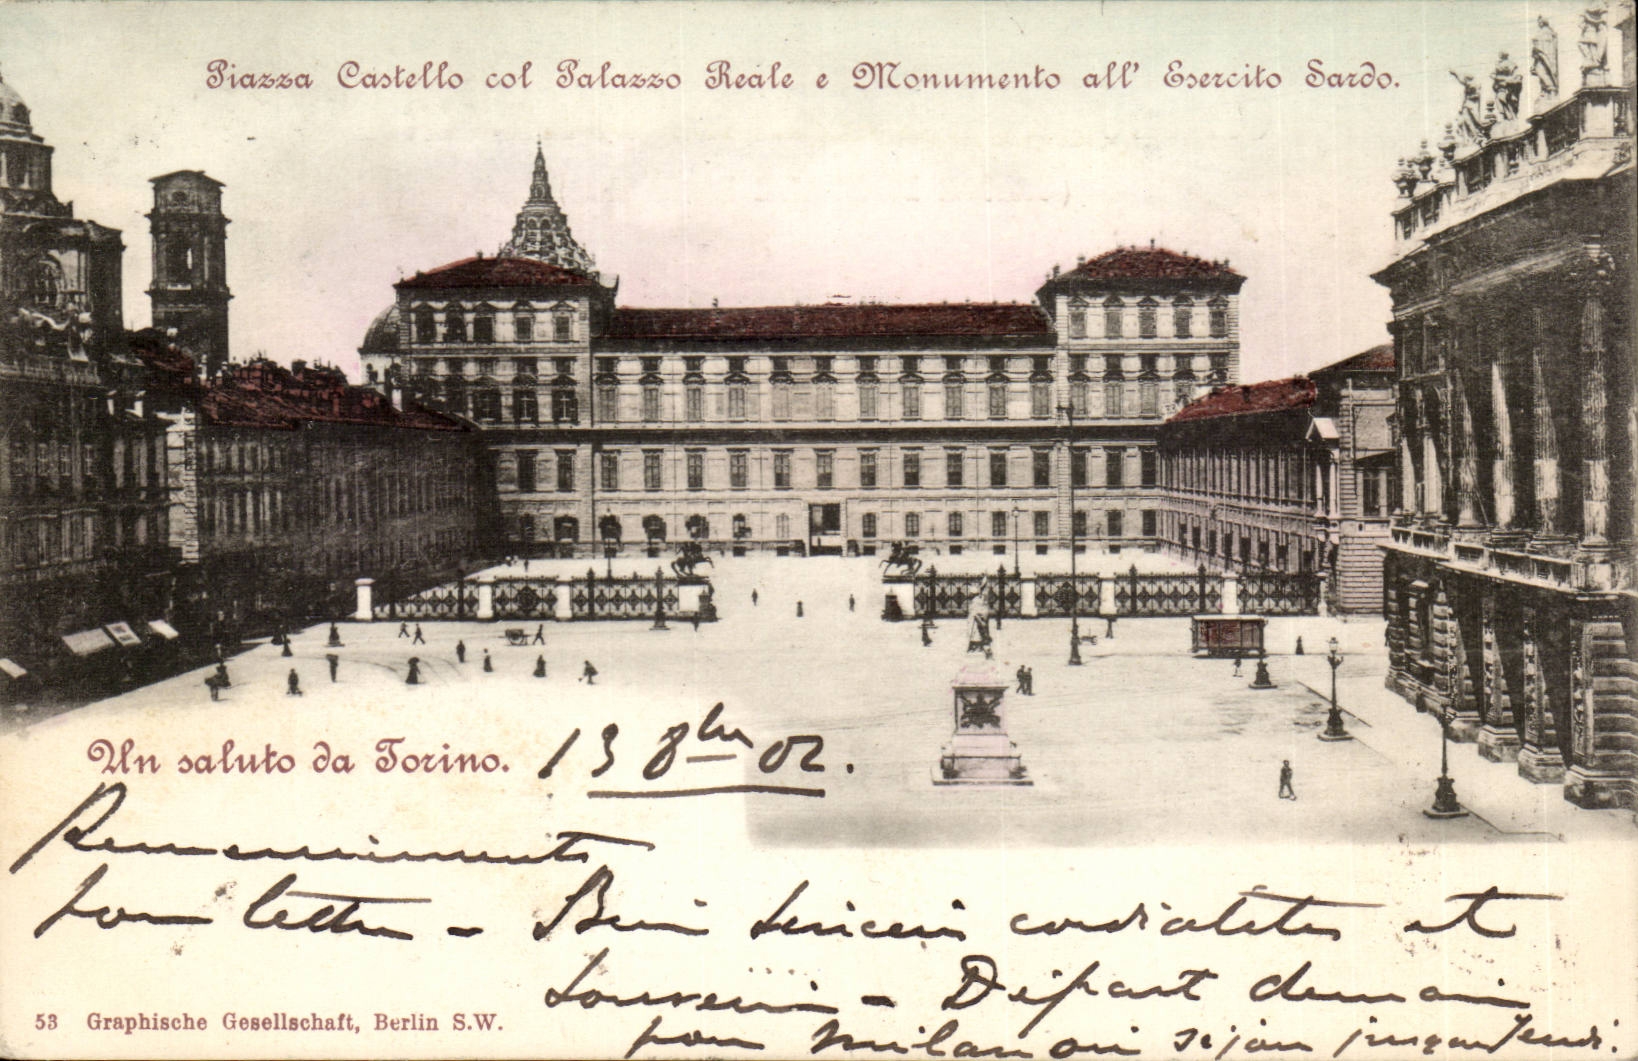 Piazza Castello col Palazzo Reale e Monumento all' Esercito Sardo.
Un saluto da Torino. 13 8bre 02.
Remerciements
pour lettre - Bien sincères cordialités et
souvenir - Départ demain
pour Milan où séjour jusqu'à Jeudi.
53 Graphische Gesellschaft, Berlin S.W.